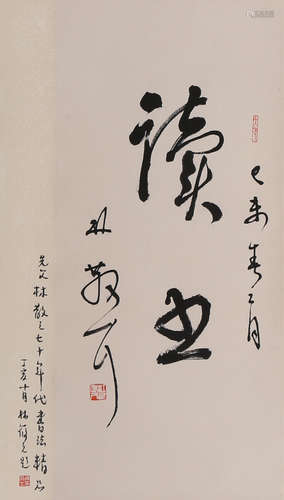 己未春二月
讀书
林散耳
先父林散之七十年代書法精品
丁亥十月林筱之题